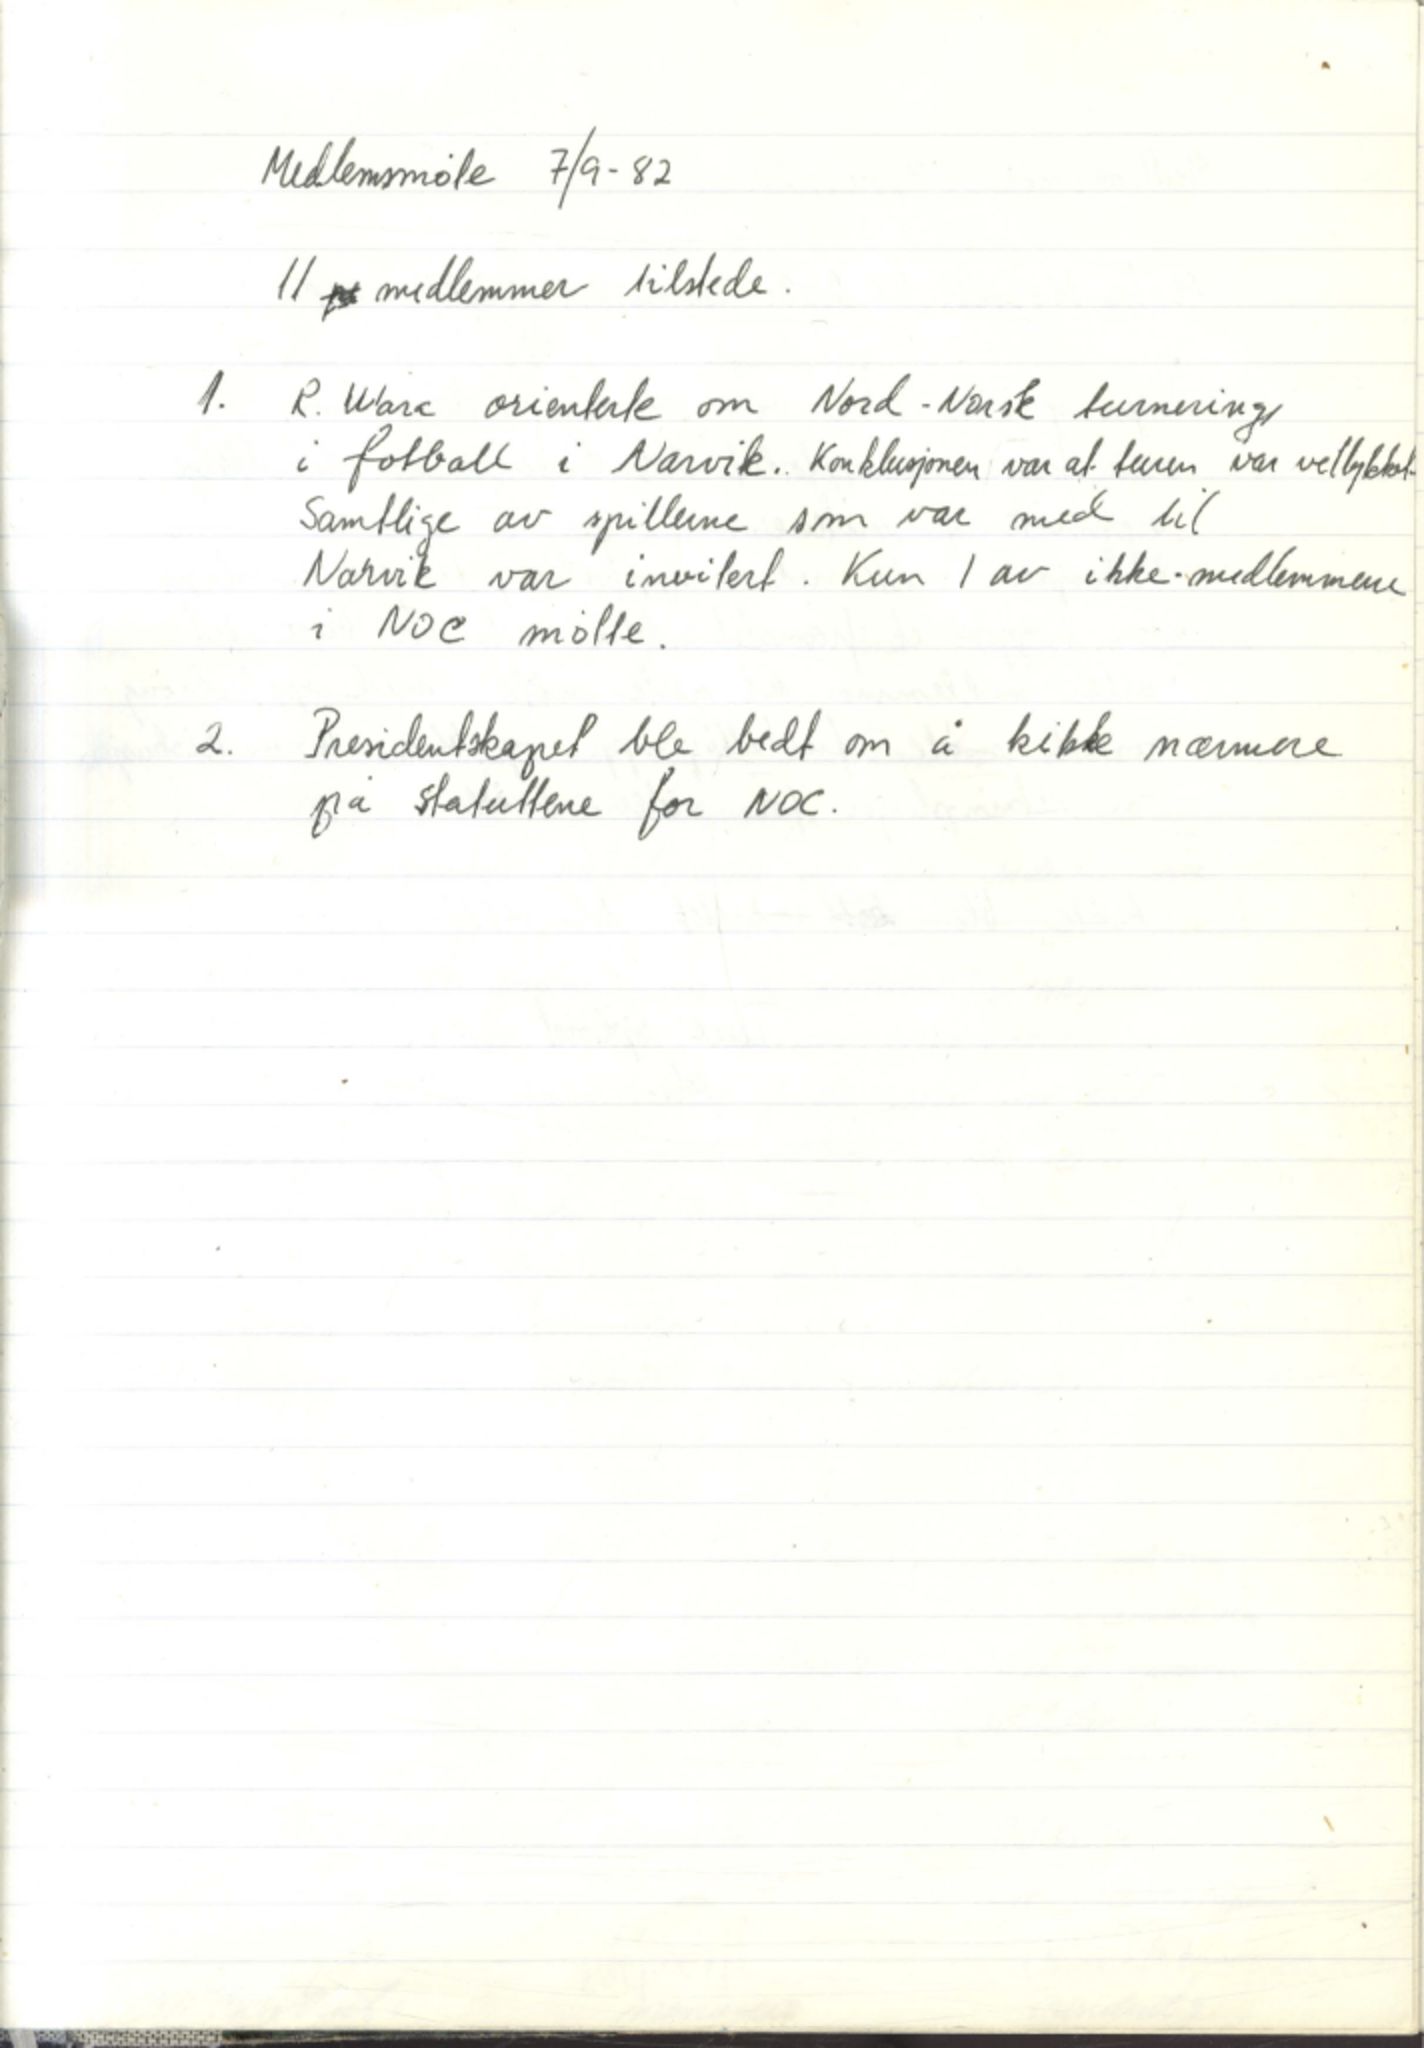 Medlemsmøte 7/9-82
11 medlemmer tilstede.
1. R. Wara orienterte om Nord-Norsk turnering
i fotball i Narvik. Konklusjonen var at turen var vellykket.
Samtlige av spillerne som var med til
Narvik var invitert. Kun 1 av ikke-medlemmene
i NOC møtte.
2. Presidentskapet ble bedt om å kikke nærmere
på statuttene for NOC.